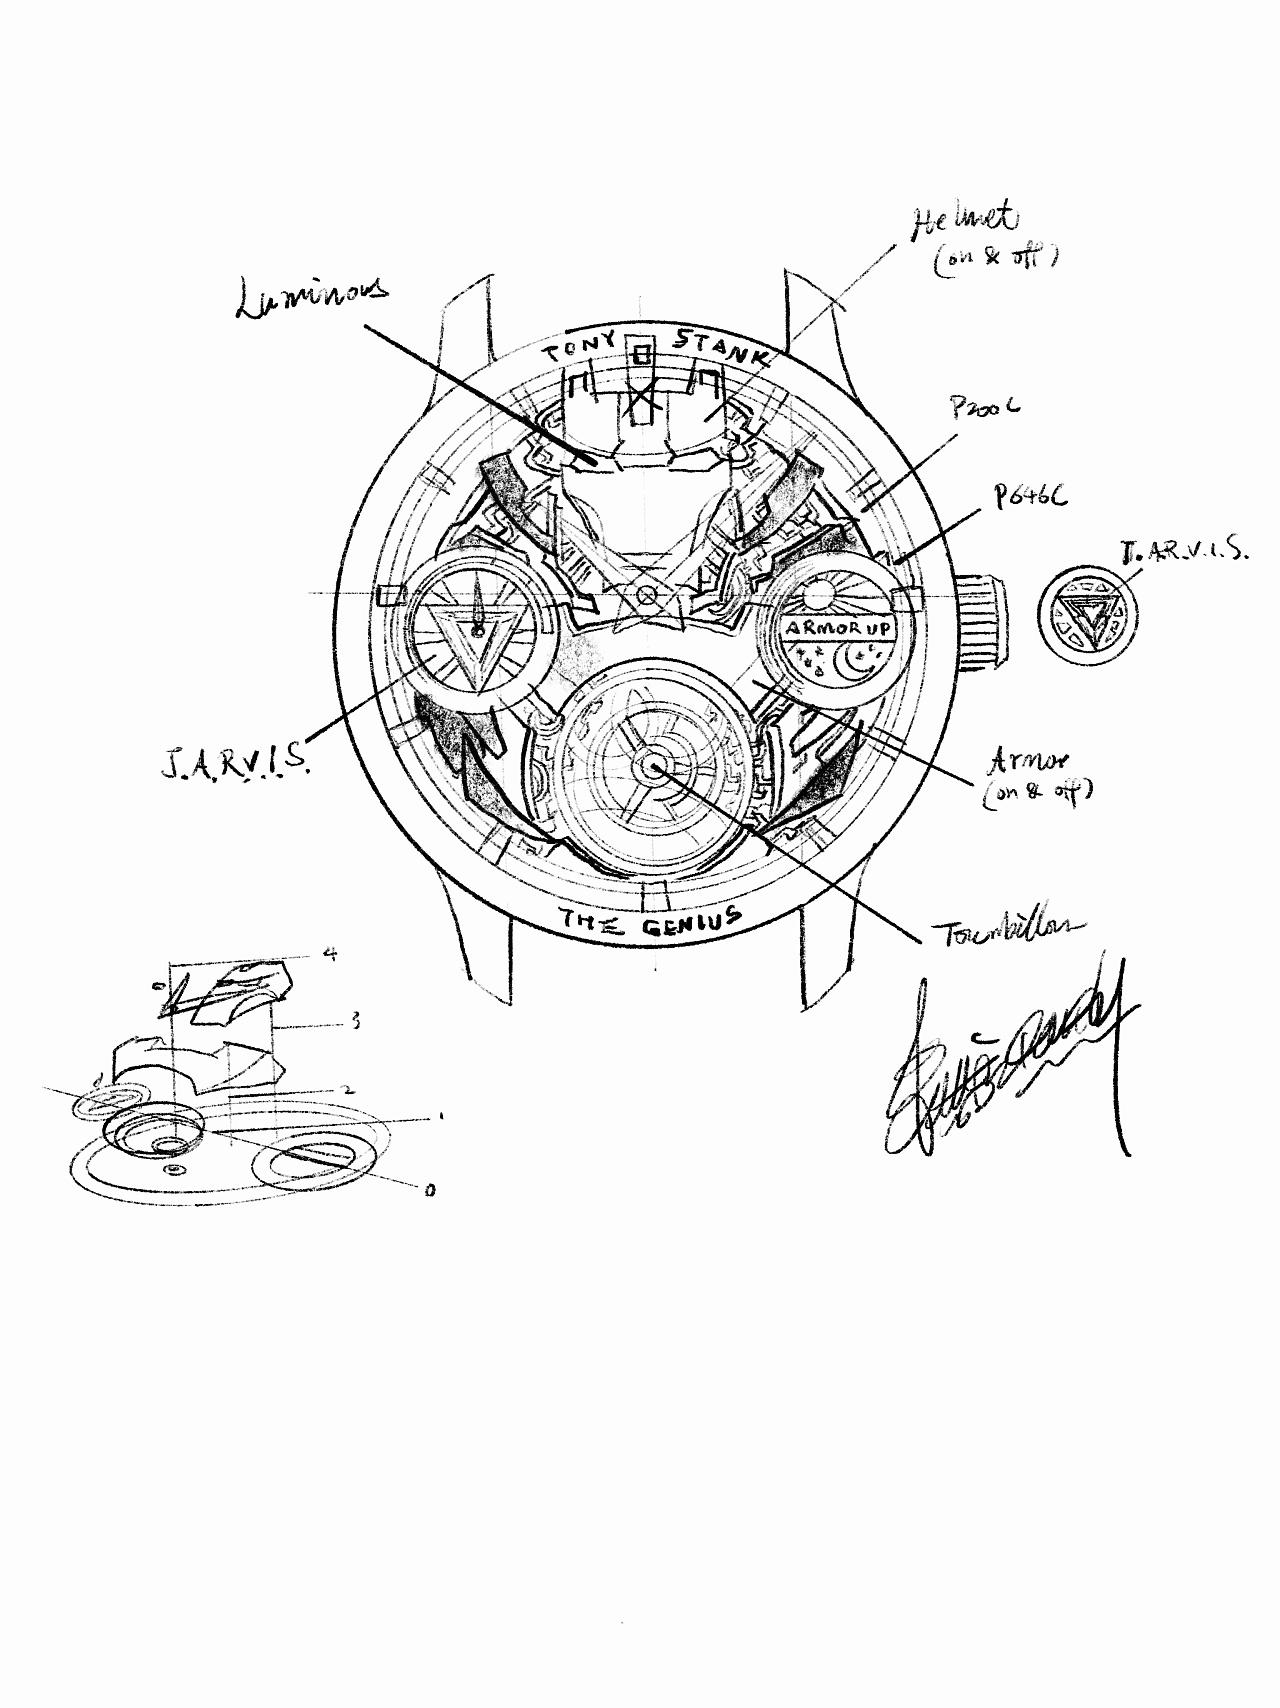 Helmet
(on & off)
Luminous
TONY STANK
P200C
P646C
J.A.R.V.I.S.
ARMOR UP
J.A.R.V.I.S.
Armor
(on & off)
THE GENIUS
Tourbillon
4
3
2
1
0